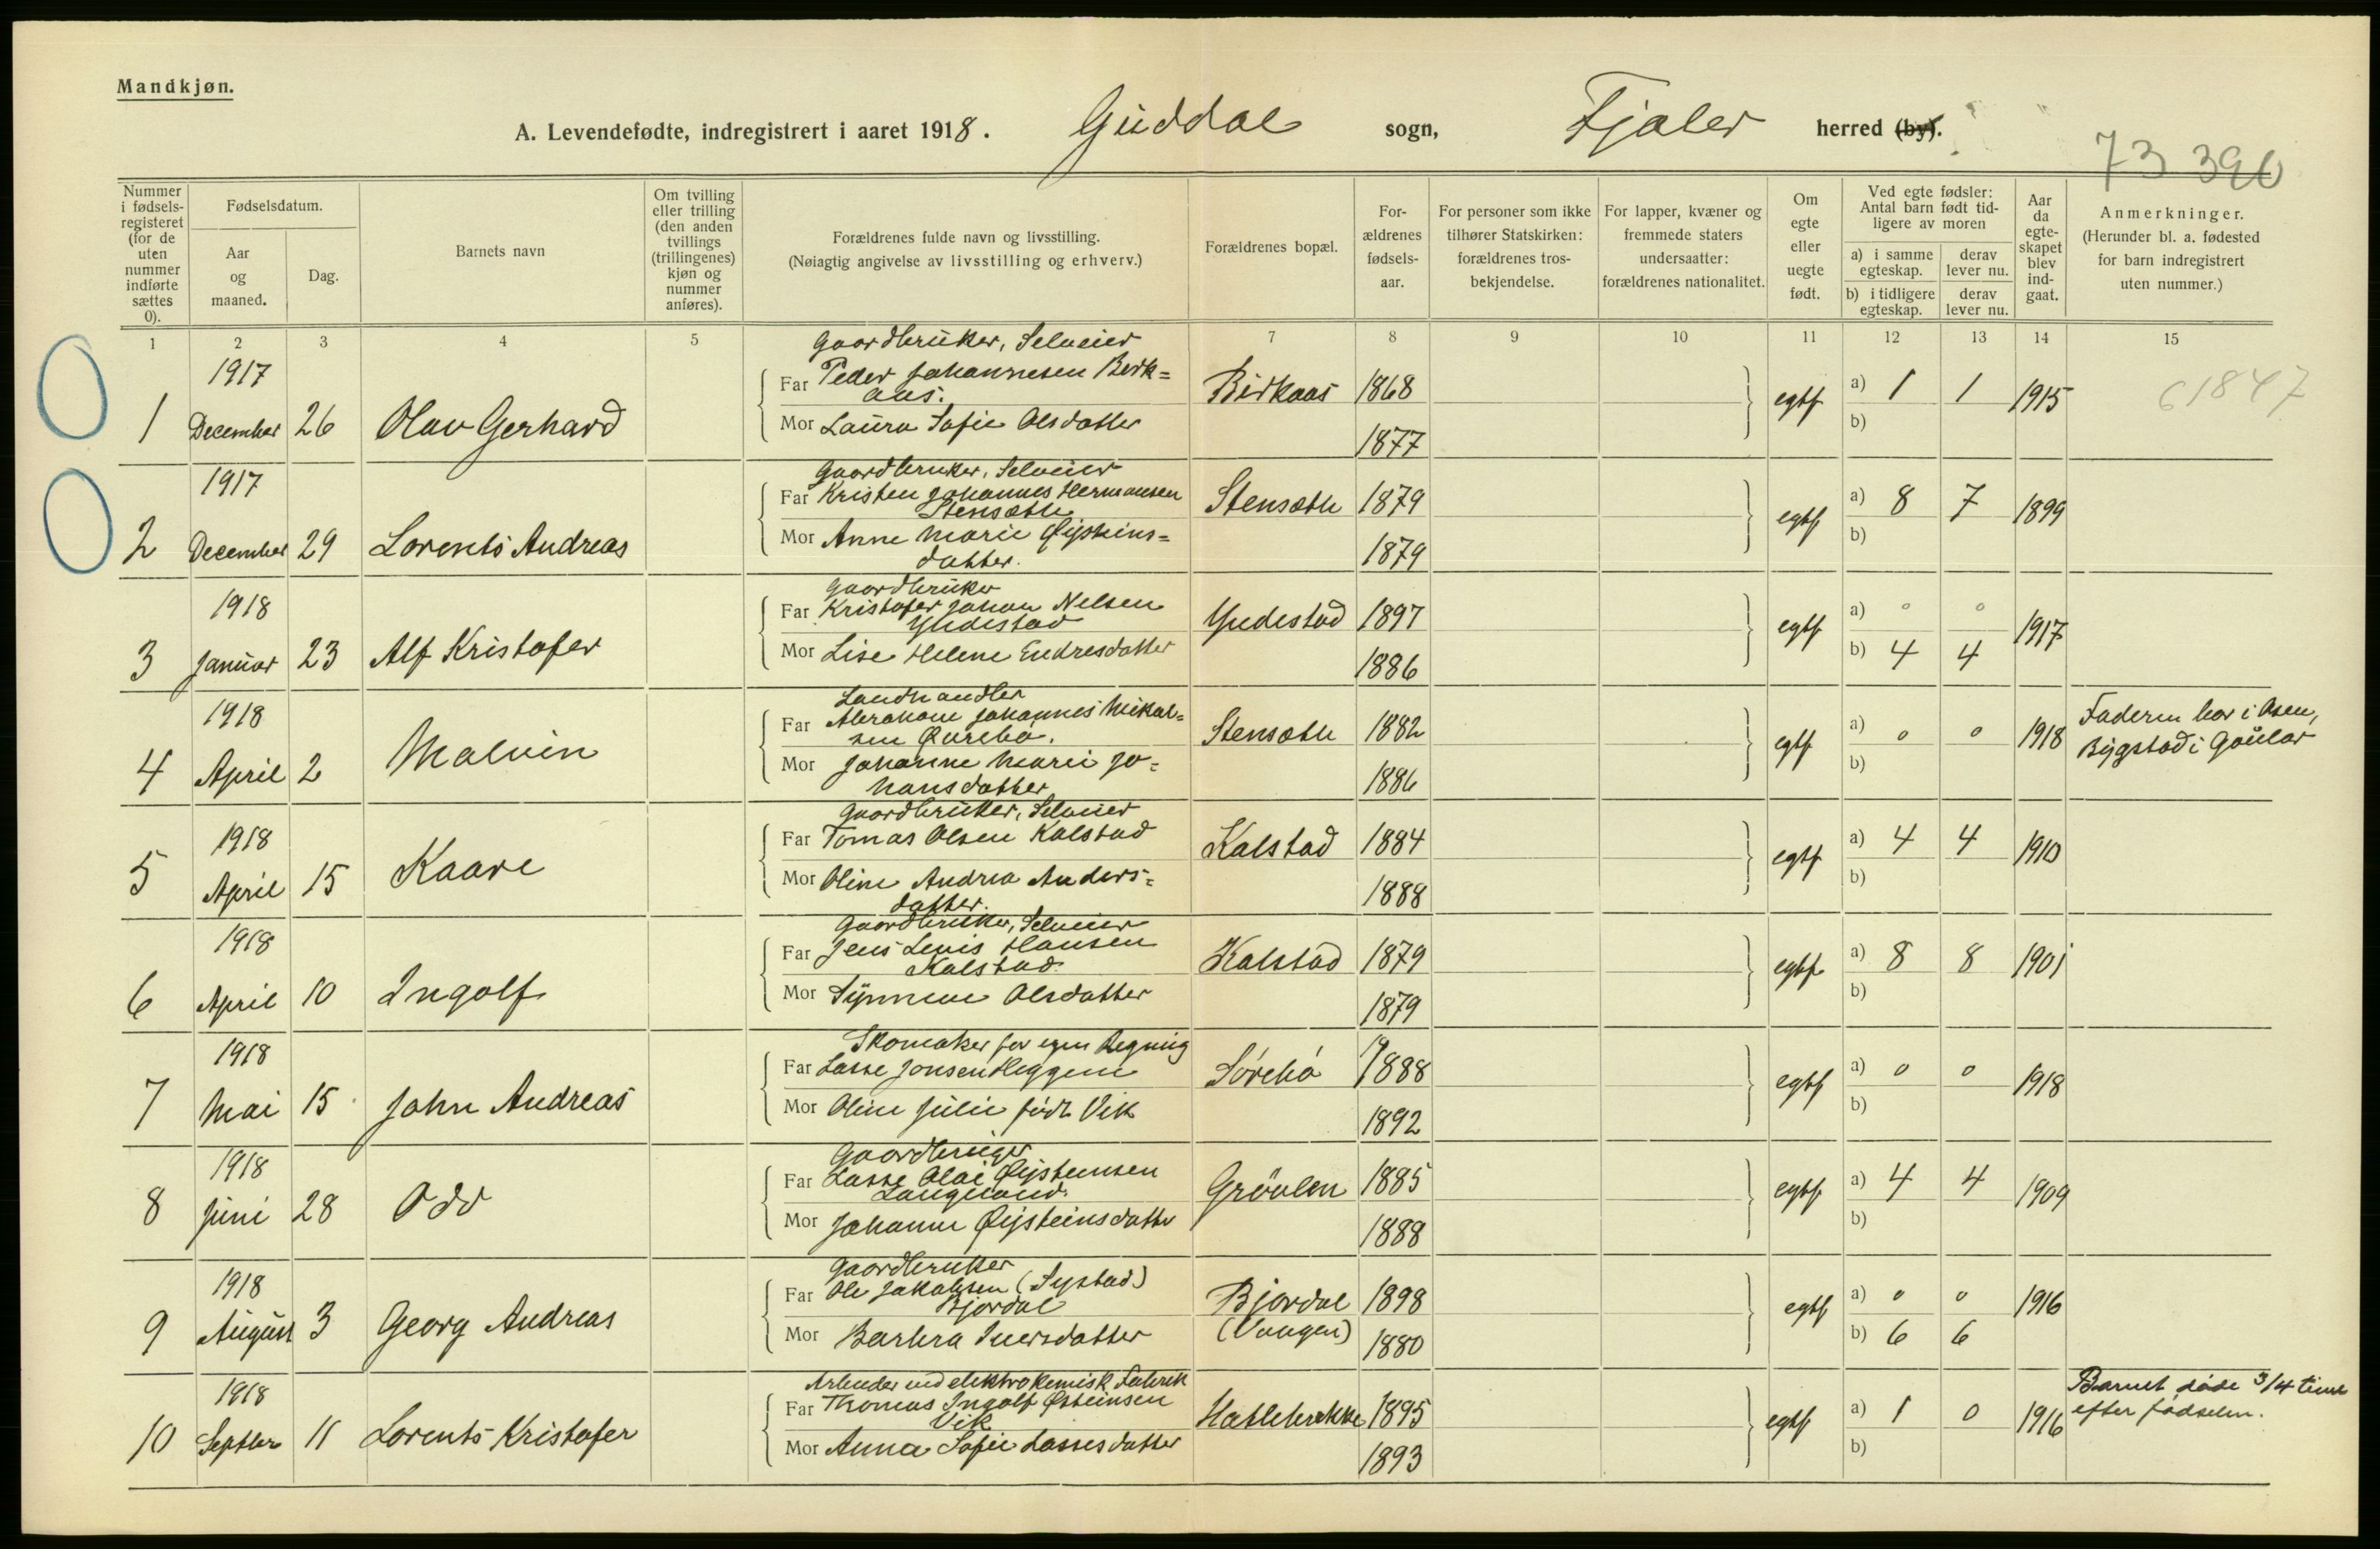 Mandkjøn.
A. Levendefødte, indregistrert i aaret 1918. Guddal sogn, Fjaler herred (by).
73 390
Nummer i fødsels-registeret (for de uten nummer indførte sættes 0).
Fødselsdatum.
Aar og maaned.
Dag.
Barnets navn
Om tvilling eller trilling (den anden tvillings (trillingenes) kjøn og nummer anføres).
Forældrenes fulde navn og livsstilling.
(Nøiagtig angivelse av livsstilling og erhverv.)
Forældrenes bopæl.
For-ældrenes fødsels-aar.
For personer som ikke tilhører Statskirken: forældrenes tros-bekjendelse.
For lapper, kvæner og fremmede staters undersaatter: forældrenes nationalitet.
Om egte eller uegte født.
Ved egte fødsler: Antal barn født tid-ligere av moren
a) i samme egteskap. derav lever nu.
b) i tidligere egteskap. derav lever nu.
Aar da egte-skapet blev ind-gaat.
Anmerkninger.
(Herunder bl. a. fødested for barn indregistrert uten nummer.)
1 2 3 4 5 7 8 9 10 11 12 13 14 15
Gaardbruker, Selveier
1917
Far Peder Johannesen Birk=
aas.
Birkaas 1868 egtf a) 1 1 1915 61847
1 December 26 Olav Gerhard
Mor Laura Sofie Olsdatter 1877 b)
Gaardbruker, Selveier
1917
Far Kristen Johannes Hermansen
Stensæth
Stensæth 1879 egtf a) 8 7 1899
2 December 29 Lorents Andreas
Mor Anne Marie Øisteins=
datter. 1879 b)
Gaardbruker
1918
Far Kristofer Johan Nelsen
Yndestad
Yndestad 1897 egtf a) 0 0 1917
3 Januar 23 Alf Kristofer
Mor Lise Helene Endresdatter 1886 b) 4 4
Landhandler
1918
Far Abraham Johannes Mikal=
sen Øvrebø.
Stensæth 1882 egtf a) 0 0 1918 Faderen bor i Osen,
Bygstad i Gaular
4 April 2 Malvin
Mor Johanne Marie Jo=
hansdatter 1886 b)
Gaardbruker, Selveier
1918
Far Tomas Olsen Kalstad Kalstad 1884 egtf a) 4 4 1910
5 April 15 Kaare
Mor Oline Andrea Anders=
datter. 1888 b)
Gaardbruker, Selveier
1918
Far Jens Lenis Hansen
Kalstad.
Kalstad 1879 egtf a) 8 8 1901
6 April 10 Ingolf
Mor Synneve Olsdatter 1879 b)
Skomaker for egen Regning
1918
Far Lasse Jonsen Heggene Sørebø 1888 egtf a) 0 0 1918
7 Mai 15 John Andreas
Mor Oline Julie født Vik 1892 b)
Gaardbruger
1918
Far Lasse Olai Øisteinsen
Langeland.
Grøvlen 1885 egtf a) 4 4 1909
8 Juni 28 Odd
Mor Johanne Øisteinsdatter 1888 b)
Gaardbruker
1918
Far Ole Jakobsen (Systad)
Bjordal
Bjordal 1898 egtf a) 0 0 1916
(Vaagen)
9 August 3 Georg Andreas
Mor Barbra Iversdatter 1880 b) 6 6
Arbeider ved elektrokemisk Fabrik
1918
Far Thomas Ingolf Østeinsen
Vik
Hatlebrekke 1895 egtf a) 1 0 1916 Barnet døde 3/4 time
efter fødselen.
10 Septbr 11 Lorents Kristofer
Mor Anna Sofie Lassesdatter 1893 b)